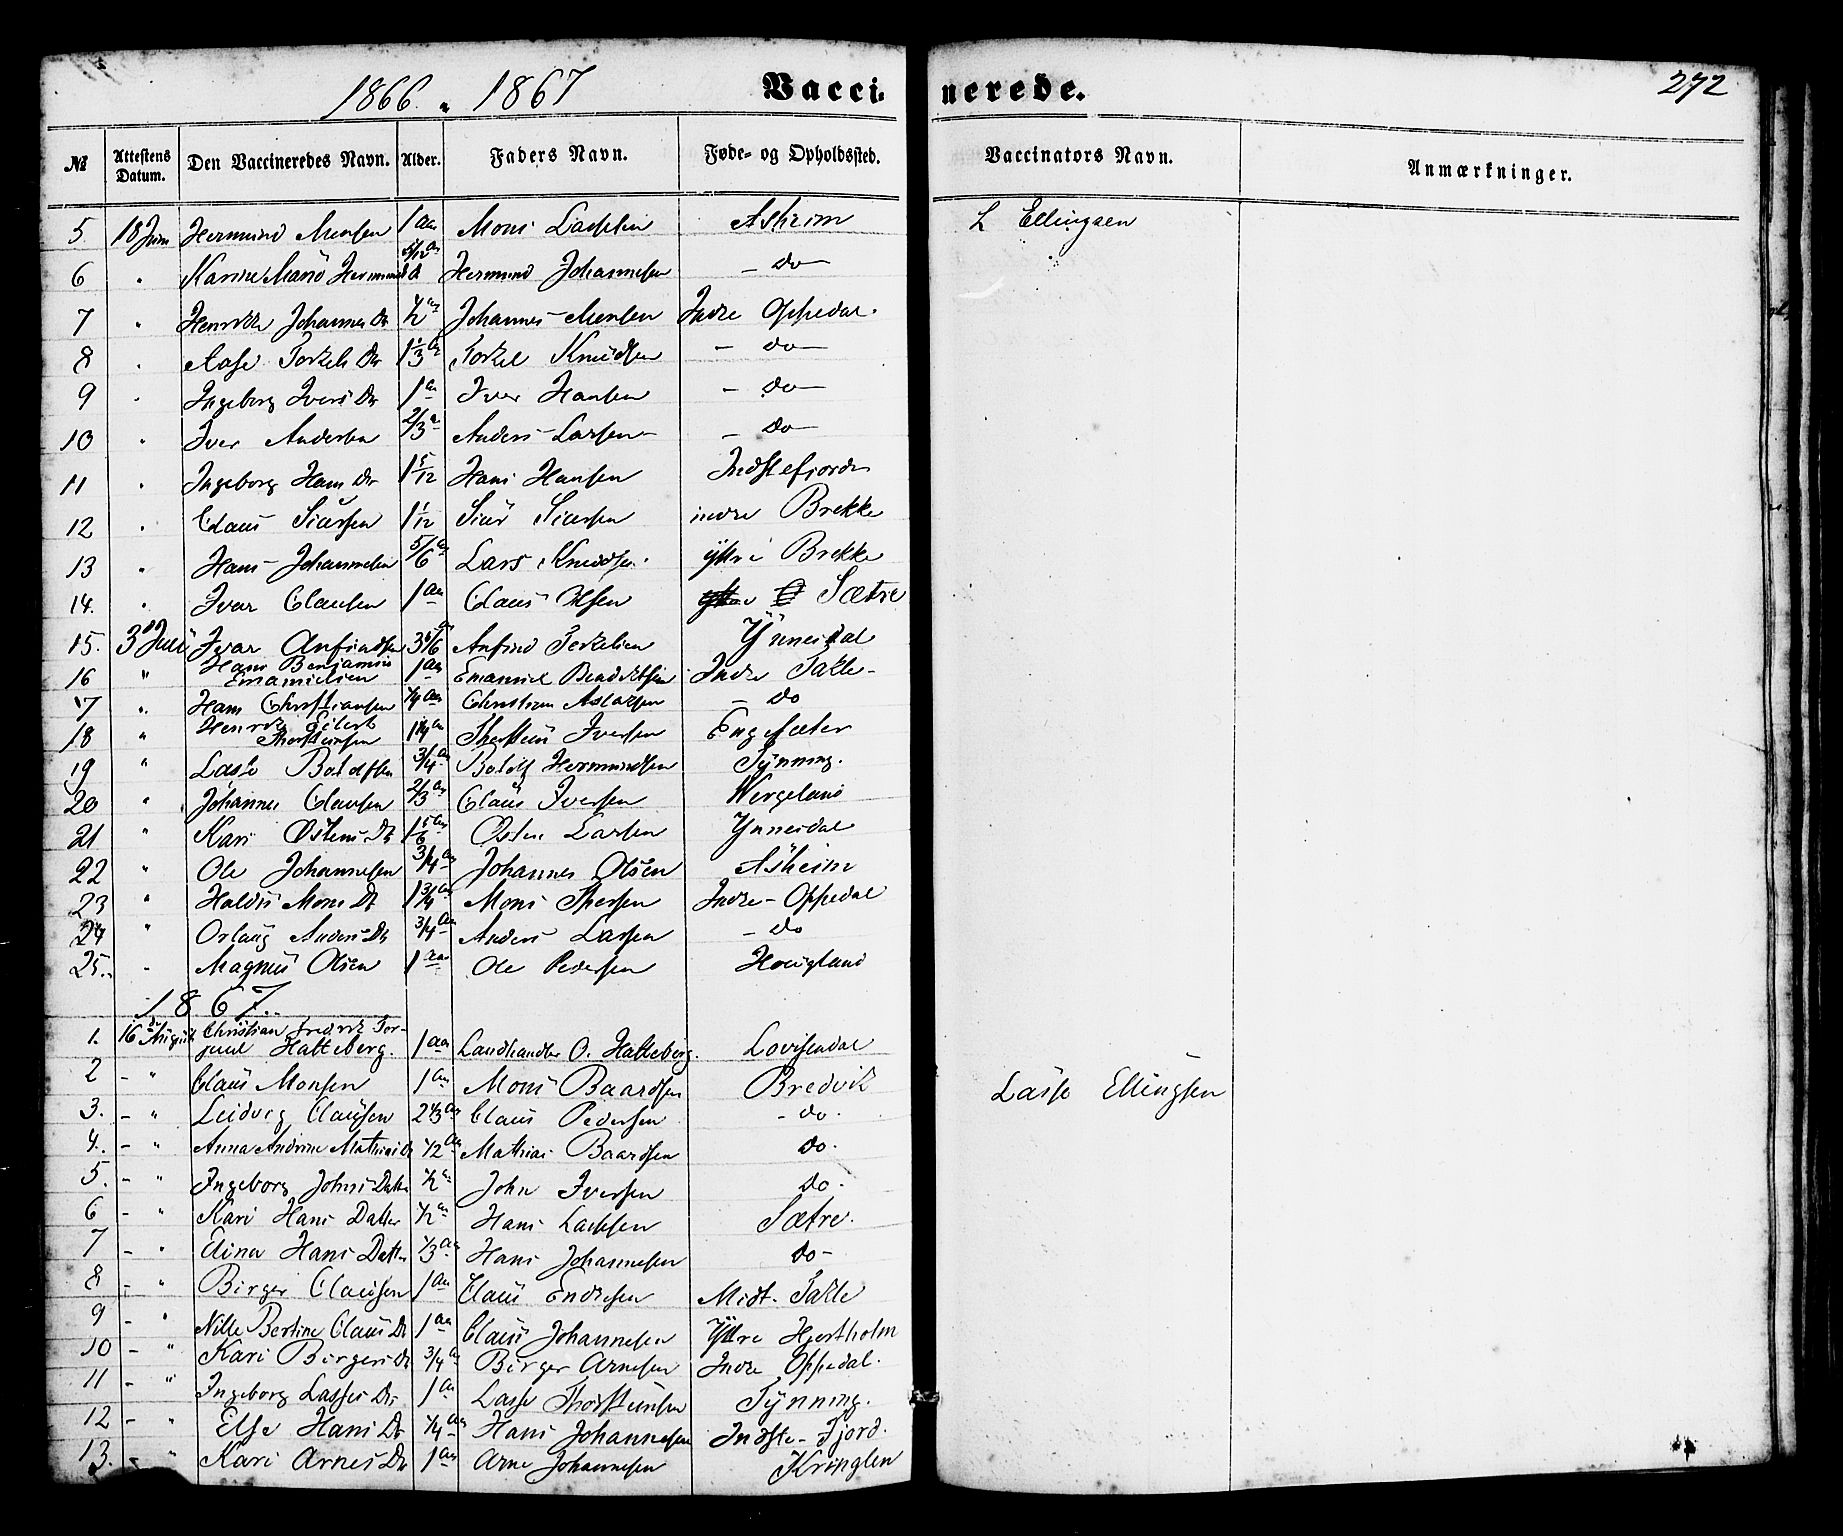 1866 " 1867 Vaccinerede. 272
№ Attestens Datum. Den Vaccineredes Navn. Alder. Faders Navn. Føde- og Opholdssted. Vaccinators Navn. Anmærkninger.
5. 18 Juni Hermund Monsen 1 aar Mons Lassesen Asheim L Ellingsen
6 " Karine Hermunds Hermund Johannesen - do -
7 " Henrikke Johannes Dr ½ aar Johannes Monsen Indre Oppedal.
8 " Aase Torkels Dr 1⅓ aar Torkel Knudsen - do -
9 " Ingeborg Ivers Dr 1 aar Iver Hansen - do -
10 " Iver Andersen 2/3 a Anders Larsen - do -
11 " Ingeborg Hans Dr 1 5/12 Hans Hansen Indstefjorden
12 " Claus Siursen 1 1/12 Siur Siursen indre Brekke
13 " Hans Johannesen 5/6 aar Lars Knudsen. yttre Brekke
14. " Ivar Clausen 1 aar Claus Olsen Sætre
15. 3 Juli Ivar Anfindsen Anfind Torkelsen Ynnesdal
16 " Hans Benjamin
Emanuelsen 1 aar Emanuel Bendiktsen Indre Takle -
17 " Hans Christiansen ¼ aar Christian Aslaksen - do
18 " Henrik Eilert
Thorsteinsen 1¼ aar Thorstein Iversen Engesæter
19 " Lasse Botolfsen ¾ aar Botolf Hermundsen Tynning.
20 " Johannes Clausen 2/3 aar Claus Iversen Wergeland
21 " Kari Østens Dr 1 5/6 aar Østen Larsen Ynnesdal
22 " Ole Johannesen ¾ aar Johannes Olsen Asheim
23 " Haldis Mons Dr 1¾ aar Mons Indre - Oppedal
24 " Orlaug Anders Dr ¾ aar Anders Larsen - do
25. " Magnus Olsen 1 aar Ole Pedersen Hougland
1867.
1. 16 August Christian Fredrik Tor-
juul Hatteberg. 1 aar Landhandler O. Hatteberg. Lovisendal
2 - " Claus Monsen 1 aar Mons Baardsen Bredvik Lasse Ellingsen
3. - " Ludvig Clausen 2⅓ aar Claus Pedersen - do.
4. - " Anna Andrine Mathias Dr ½ aar Mathias Baardsen do.
5. - " Ingeborg Johns Datter ½ aar John Iversen do.
6 - " Kari Hans Datter ½ aar Hans Lassesen Sætre.
7 - " Elina Hans Datter ⅓ aar Hans Johannesen do -
8 - " Birger Clausen 1 aar Claus Endresen Midt. Takle
9 - " Nille Bertine Claus Dr 1 aar Claus Johannesen Yttre Hjortholm
10 - " Kari Birgers Dr ¾ aar Birger Arnesen Indre Oppedal.
11 - " Ingeborg Lasses Dr 1 aar Lasse Thorsteinsen Tynning.
12 - " Else Hans Dr ¼ aar Hans Johannesen Indste - Fjord.
13. - " Kari Arnes Dr 1 aar Arne Johannesen Kringlen